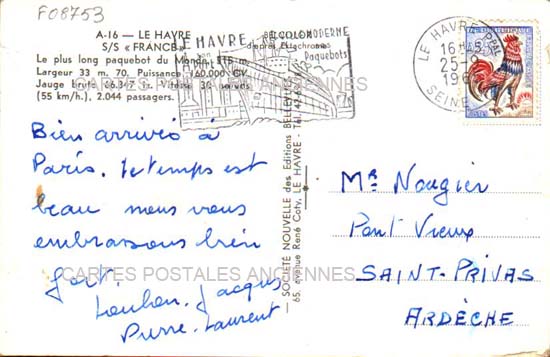 F08753
A-16 — LE HAVRE
S/S « FRANCE »
BELCOLOR
d'après Ektachrome
Le plus long paquebot du Monde : 315 m.
Largeur 33 m. 70. Puissance 160.000 CV.
Jauge brute : 66.347 Tx. Vitesse 30 nœuds
(55 km/h.). 2.044 passagers.
LE HAVRE
MODERNE
Paquebots
LE HAVRE PPAL
16H45
25-9
SEINE
POSTES
Bien arrivés à
Paris. le temps est
beau nous vous
embrassons bien
fort.
Jacques
Pierre. Laurent
SOCIÉTÉ NOUVELLE des Editions BELLEVUES
65, avenue René Coty, LE HAVRE - Tél.
Mr Nougier
Pont Vieux
SAINT-PRIVAS
ARDÈCHE
CARTES POSTALES ANCIENNES
CARTES POSTALES ANCIENNES